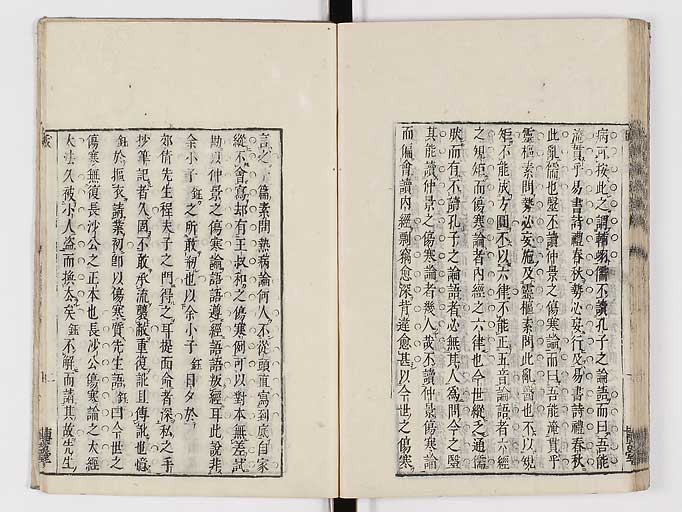 病可按此之謂輔翊儒不讀孔子之論語而曰吾能
淹貫乎易書詩禮春秋勢必妄行及易書詩禮春秋
此亂儒也醫不讀仲景之傷寒論而曰吾能淹貫乎
靈樞素問勢必妄施及靈樞素問此亂醫也不以規
矩不能成方圓不以六律不能正五音論語者六經
之規矩而傷寒論者內經之六律也今世縱之通儒
然而有不讀孔子之論語者必無其人為問今之醫
其能讀仲景之傷寒論者幾人哉不讀仲景傷寒論
而偏會讀內經剽竊愈深背違愈甚以今世之傷寒
言之 篇素問熱病論何人不從頭直寫到底自家
縱不會寫却有王叔和之傷寒例可以對本無差試
勘以仲景之傷寒論語語遵經語語扳經耳此說非
余小子鈺之所敢剏也以余小子鈺日夕於
郊倩先生程夫子之門得之耳提面命者深私之手
抄筆記者久固不敢承流襲教重復訛且傳訛也憶
鈺於摳衣請業初即以傷寒質先生語鈺曰今世之
傷寒無復長沙公之正本也長沙公傷寒論之大經
大法久被小人盜而換去矣鈺不解而請其故先生